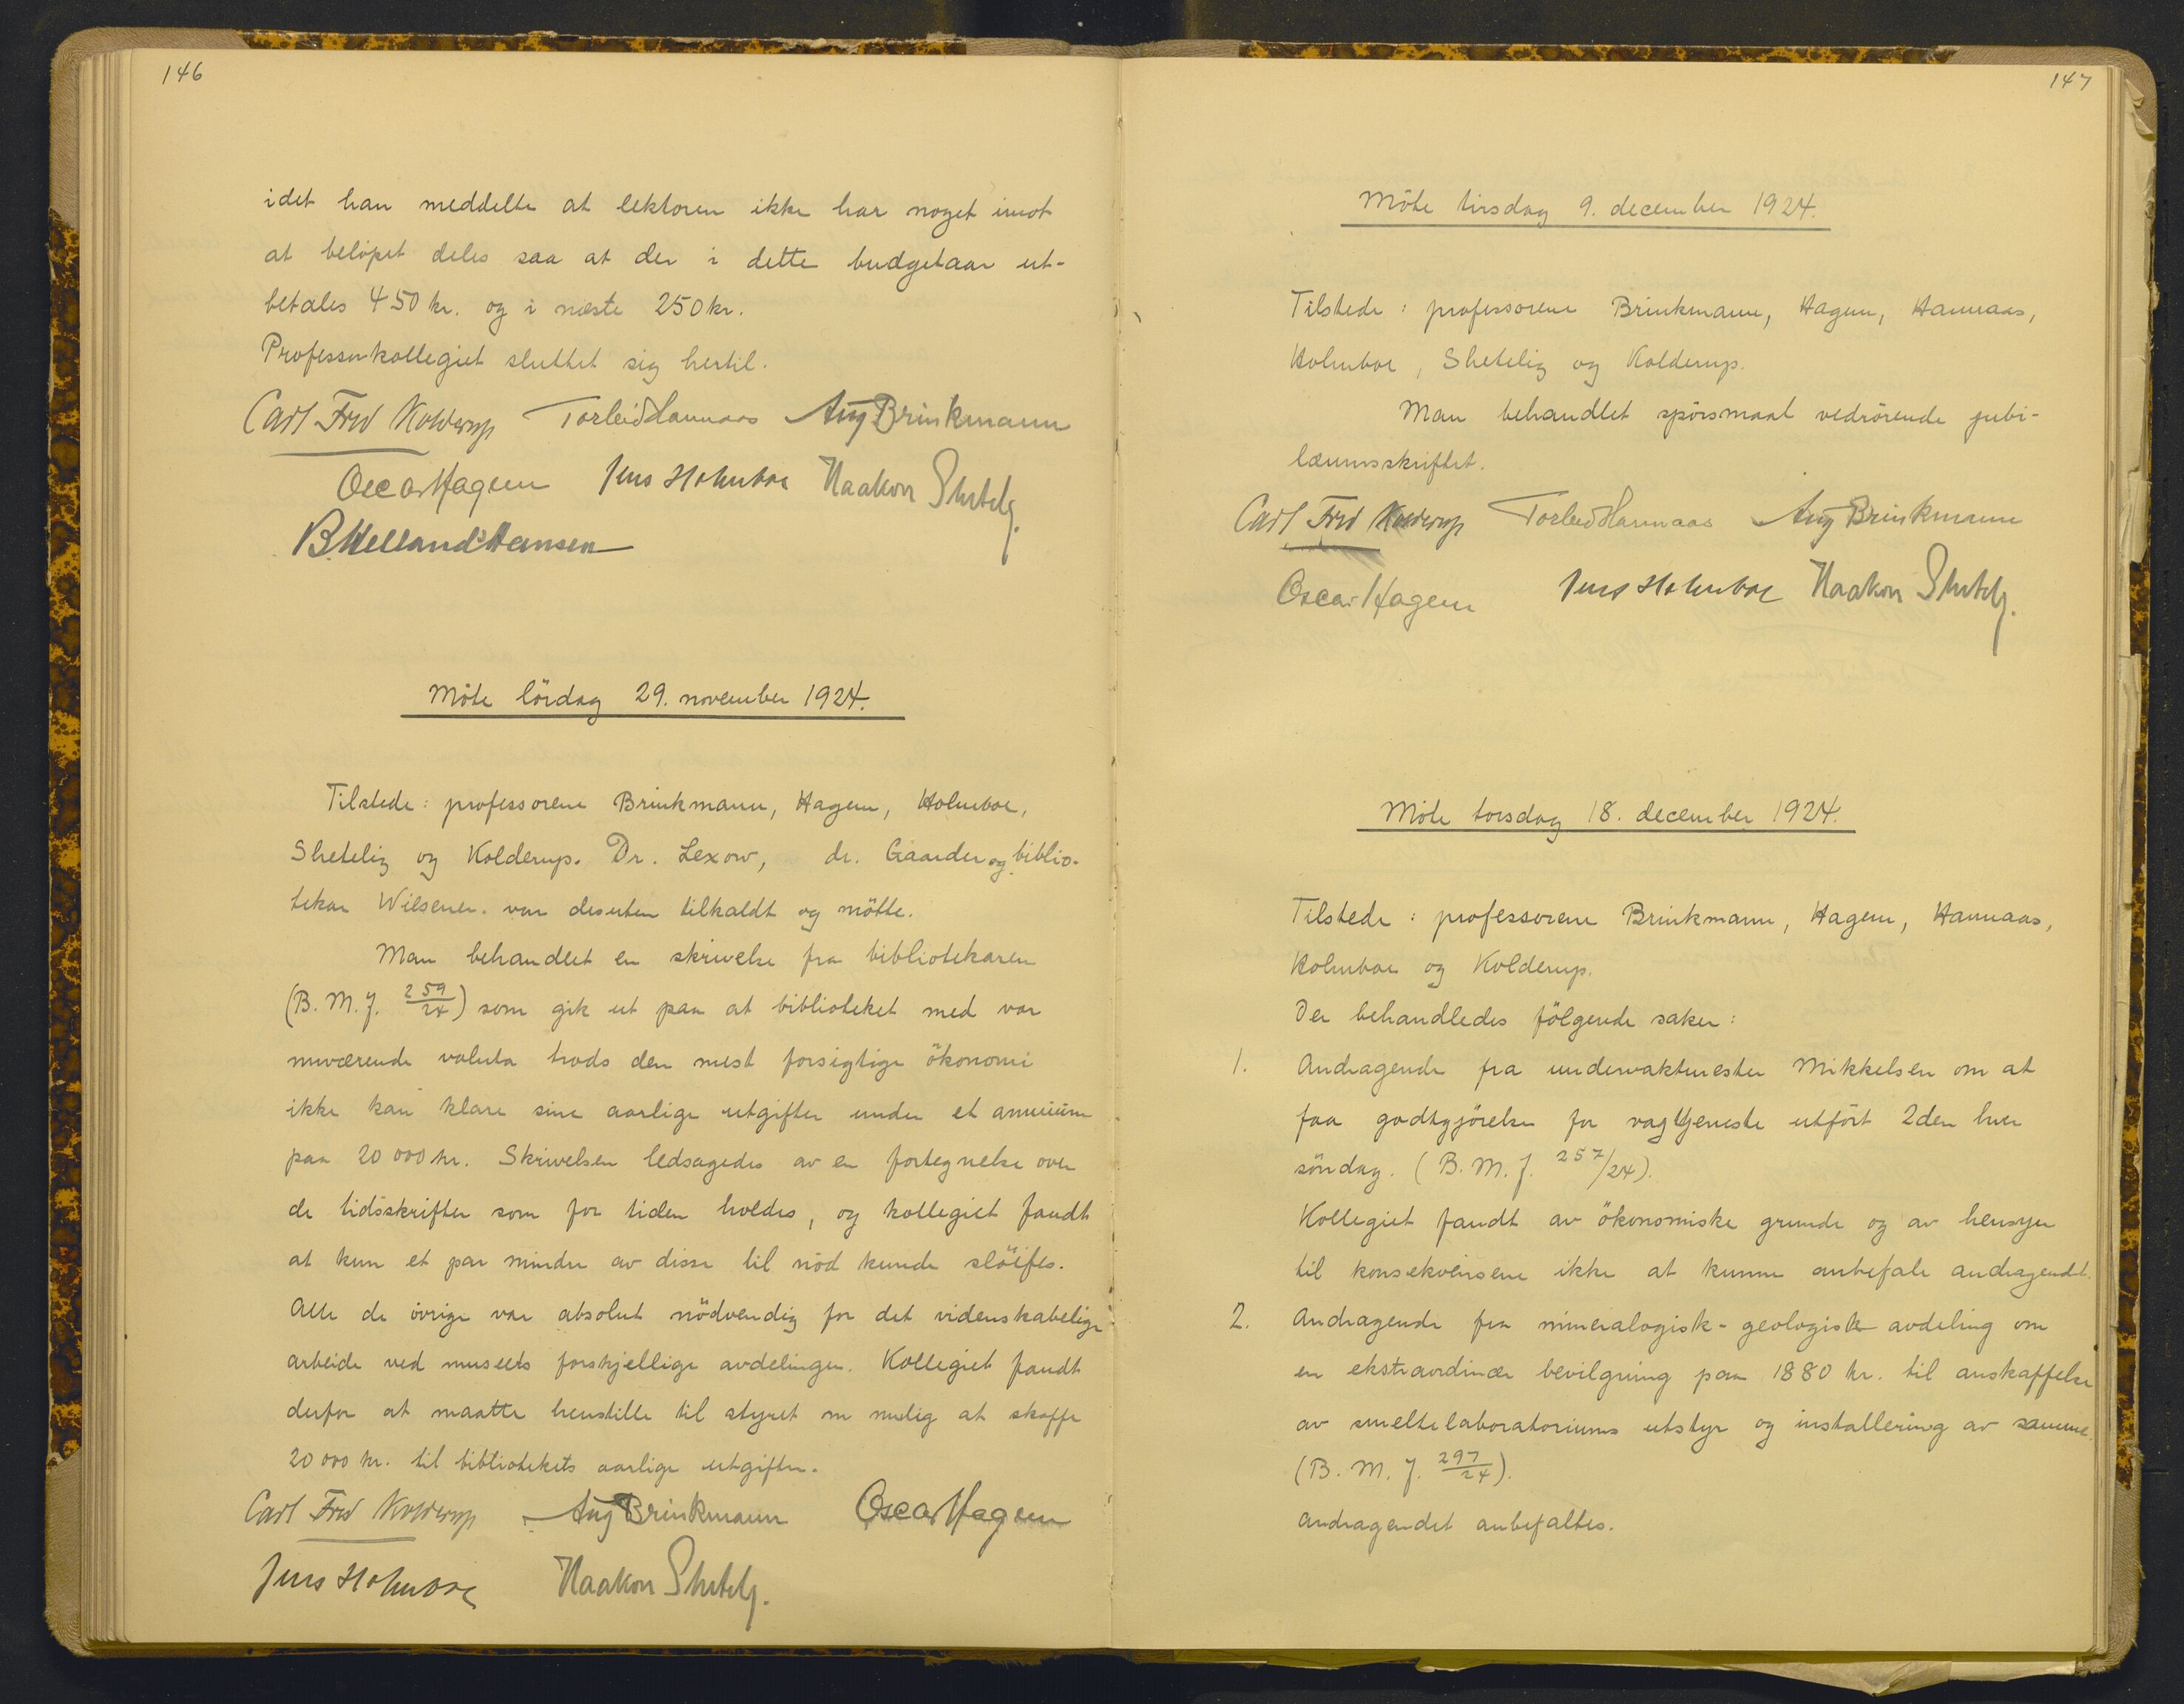 146
idet han meddelte at lektoren ikke har noget imot
at beløpet deles saa at der i dette budgetaar ut-
betales 450 kr. og i næste 250 kr.
Professorkollegiet sluttet sig hertil.
Carl Fred Kolderup Torleiv Hannaas Aug Brinkmann
Oscar Hagem Jens Holmboe Haakon Shetelig.
B. Helland-Hansen
Möte lördag 29. november 1924.
Tilstede: professorene Brinkmann, Hagem, Holmboe,
Shetelig og Kolderup. Dr. Lexow, dr. Gaarder og biblio-
tekar Wiesener. var desuten tilkaldt og mötte.
Man behandlet en skrivelse fra bibliotekaren
(B. M. J. 259/24) som gik ut paa at biblioteket med vor
nuværende valuta trods den mest forsigtige ökonomi
ikke kan klare sine aarlige utgifter under et annuum
paa 20 000 kr. Skrivelsen ledsagedes av en fortegnelse over
de tidsskrifter som for tiden holdes, og kollegiet fandt
at kun et par mindre av disse til nöd kunde slöifes.
Alle de övrige var absolut nödvendig for det videnskabelige
arbeide ved museets forskjellige avdelinger. Kollegiet fandt
derfor at maatte henstille til styret om mulig at skaffe
20 000 kr. til bibliotekets aarlige utgifter.
Carl Fred Kolderup Aug Brinkmann Oscar Hagem
Jens Holmboe Haakon Shetelig.
147
Möte tirsdag 9. december 1924.
Tilstede: professorene Brinkmann, Hagem, Hannaas,
Holmboe, Shetelig og Kolderup.
Man behandlet spörsmaal vedrörende jubi-
læumsskriftet.
Carl Fred Kolderup Torleiv Hannaas Aug Brinkmann
Oscar Hagem Jens Holmboe Haakon Shetelig.
Möte torsdag 18. december 1924.
Tilstede: professorene Brinkmann, Hagem, Hannaas,
Holmboe og Kolderup.
Der behandledes fölgende saker:
1. Andragende fra undervaktmester Mikkelsen om at
faa godtgjörelse for vagttjeneste utfört 2den hver
söndag. (B. M. J. 257/24).
Kollegiet fandt av ökonomiske grunde og av hensyn
til konsekvensene ikke at kunne anbefale andragendet.
2. Andragende fra mineralogisk-geologisk avdeling om
en ekstraordinær bevilgning paa 1880 kr. til anskaffelse
av smeltelaboratoriums utstyr og installering av samme.
(B. M. J. 297/24).
Andragendet anbefaltes.